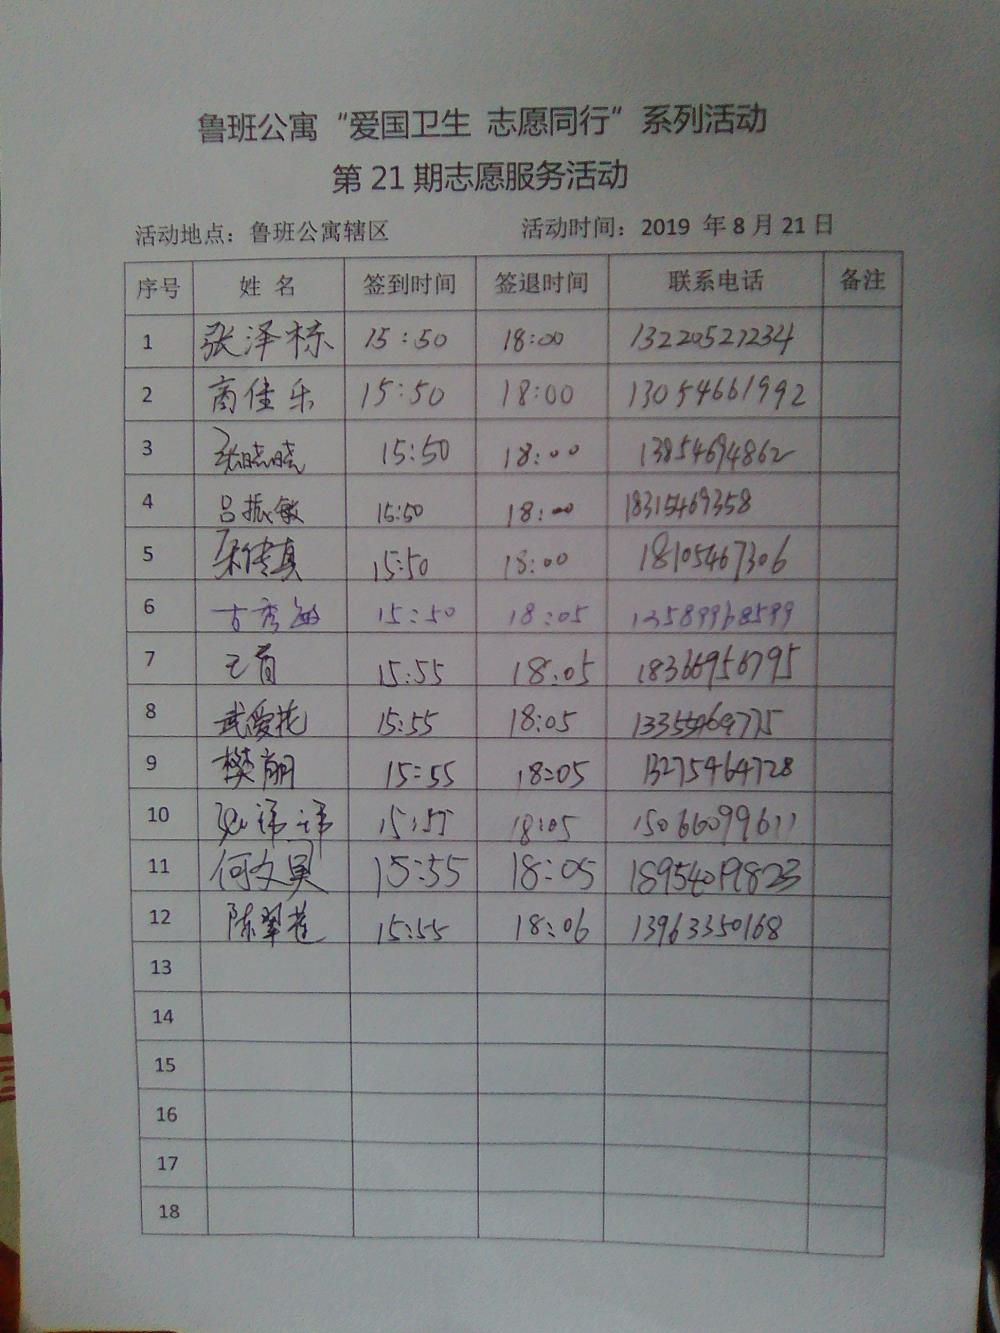 鲁班公寓“爱国卫生 志愿同行”系列活动
第 21 期志愿服务活动
活动地点：鲁班公寓辖区 活动时间：2019 年 8 月 21 日
序号 姓 名 签到时间 签退时间 联系电话 备注
1 张泽栋 15:50 18:00 13220527234
2 商佳乐 15:50 18:00 13054661992
3 张晓晓 15:50 18:00 13854694862
4 吕振敏 15:50 18:00 18315469358
5 宋传真 15:50 18:00 18105467306
6 古秀 15:50 18:05 13589968599
7 王育 15:55 18:05 18366956795
8 武爱花 15:55 18:05 13355469775
9 樊丽 15:55 18:05 13275464728
10 祎祎 15:55 18:05 15066099611
11 何文 15:55 18:05 18954019823
12 陈翠莲 15:55 18:06 13963350168
13
14
15
16
17
18